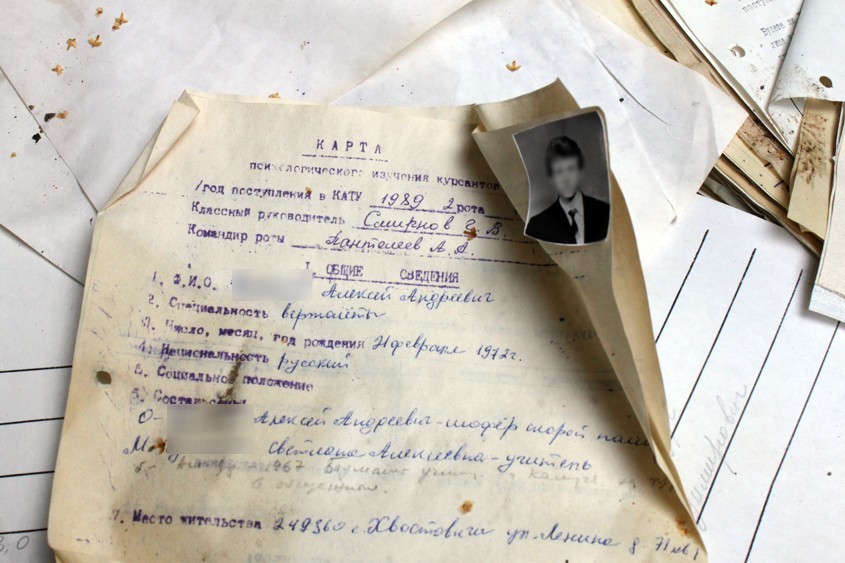 КАРТА
психологического изучения курсантов
/год поступления в КАТУ 1989 2 рота
Классный руководитель Смирнов В.
Командир роты Пантелеев А. А.
I. ОБЩИЕ СВЕДЕНИЯ
1. Ф.И.О. Алексей Андреевич
2. Специальность вертолёты
3. Число, месяц, год рождения февраля 1972 г.
4. Национальность русский
5. Социальное положение
5. Состав семьи
О- Алексей Андреевич - шофёр скорой
М Светлана Алексеевна - учитель
1967
в общежитии.
7. Место жительства 249360 с. Хвостовичи ул. Ленина д. 71